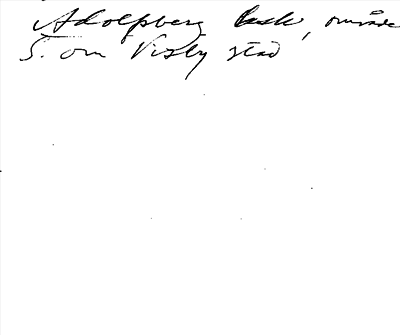 Adolfsberg backe, område
S. om Visby stad